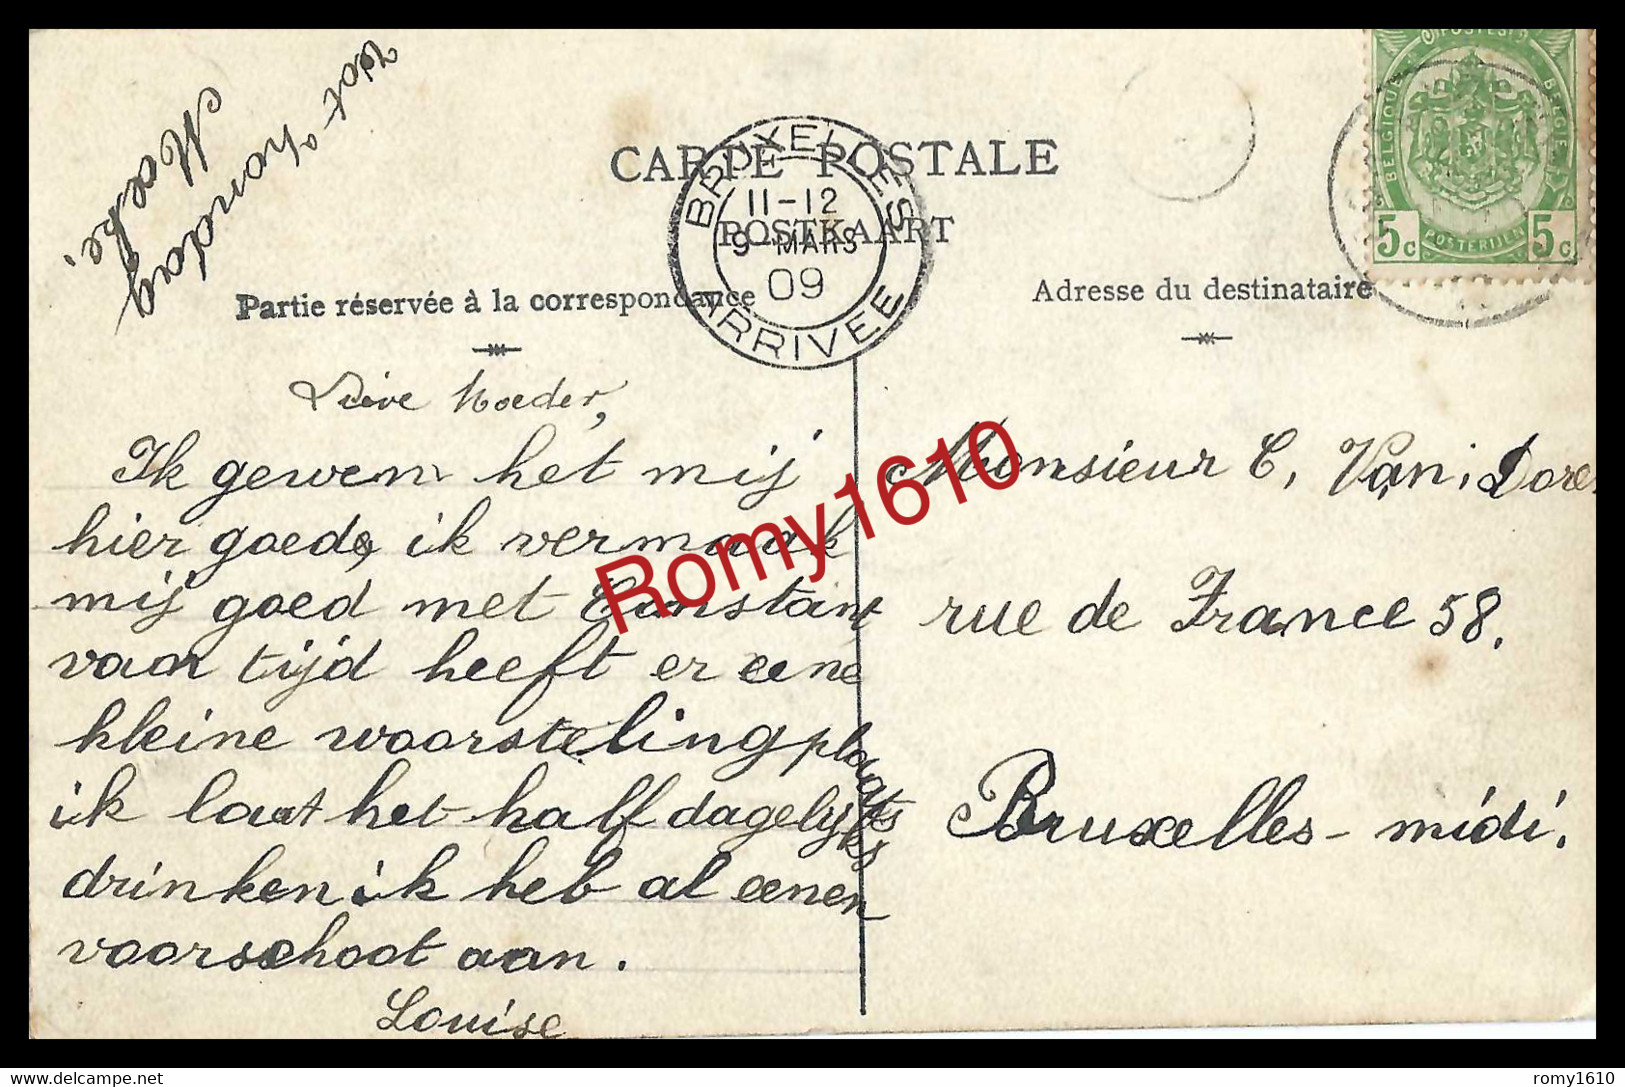 tot hondag
Moeke.
CARTE POSTALE
POSTKAART
BRUXELLES
11-12
9 MARS
09
ARRIVEE
POSTES
BELGIQUE
BELGIË
5c POSTERIJEN 5c
Partie réservée à la correspondance
Adresse du destinataire
Lieve Moeder,
Ik gewen het mij
hier goed, ik vermaak
mij goed met Constant
van tijd heeft er eene
kleine woorsteling plaats
ik laat het half dagelijks
drinken ik heb al eenen
voorschoot aan.
Louise
Monsieur C. Van Doren
rue de France 58.
Bruxelles - midi.
Romy1610
delcampe.net
romy1610